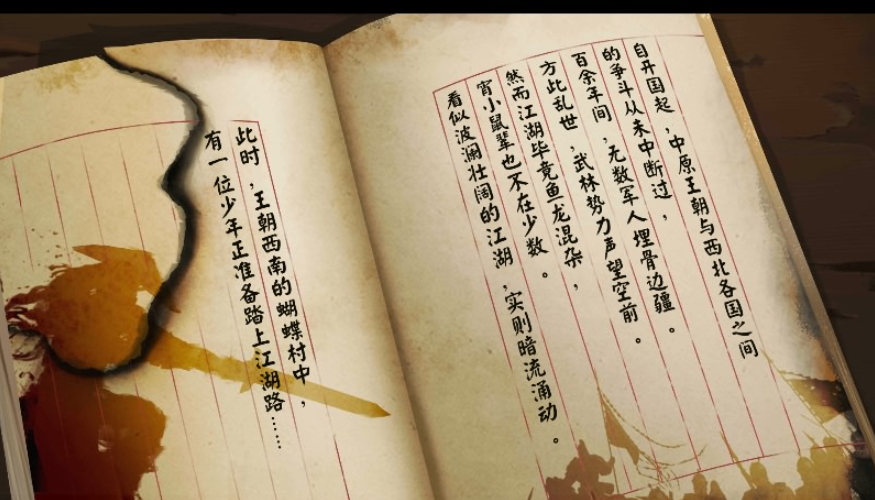 自开国起，中原王朝与西北各国之间
的争斗从未中断过，
百余年间，无数军人埋骨边疆。
方此乱世，武林势力声望空前。
然而江湖毕竟鱼龙混杂，
宵小鼠辈也不在少数。
看似波澜壮阔的江湖，实则暗流涌动。
此时，王朝西南的蝴蝶村中，
有一位少年正准备踏上江湖路……